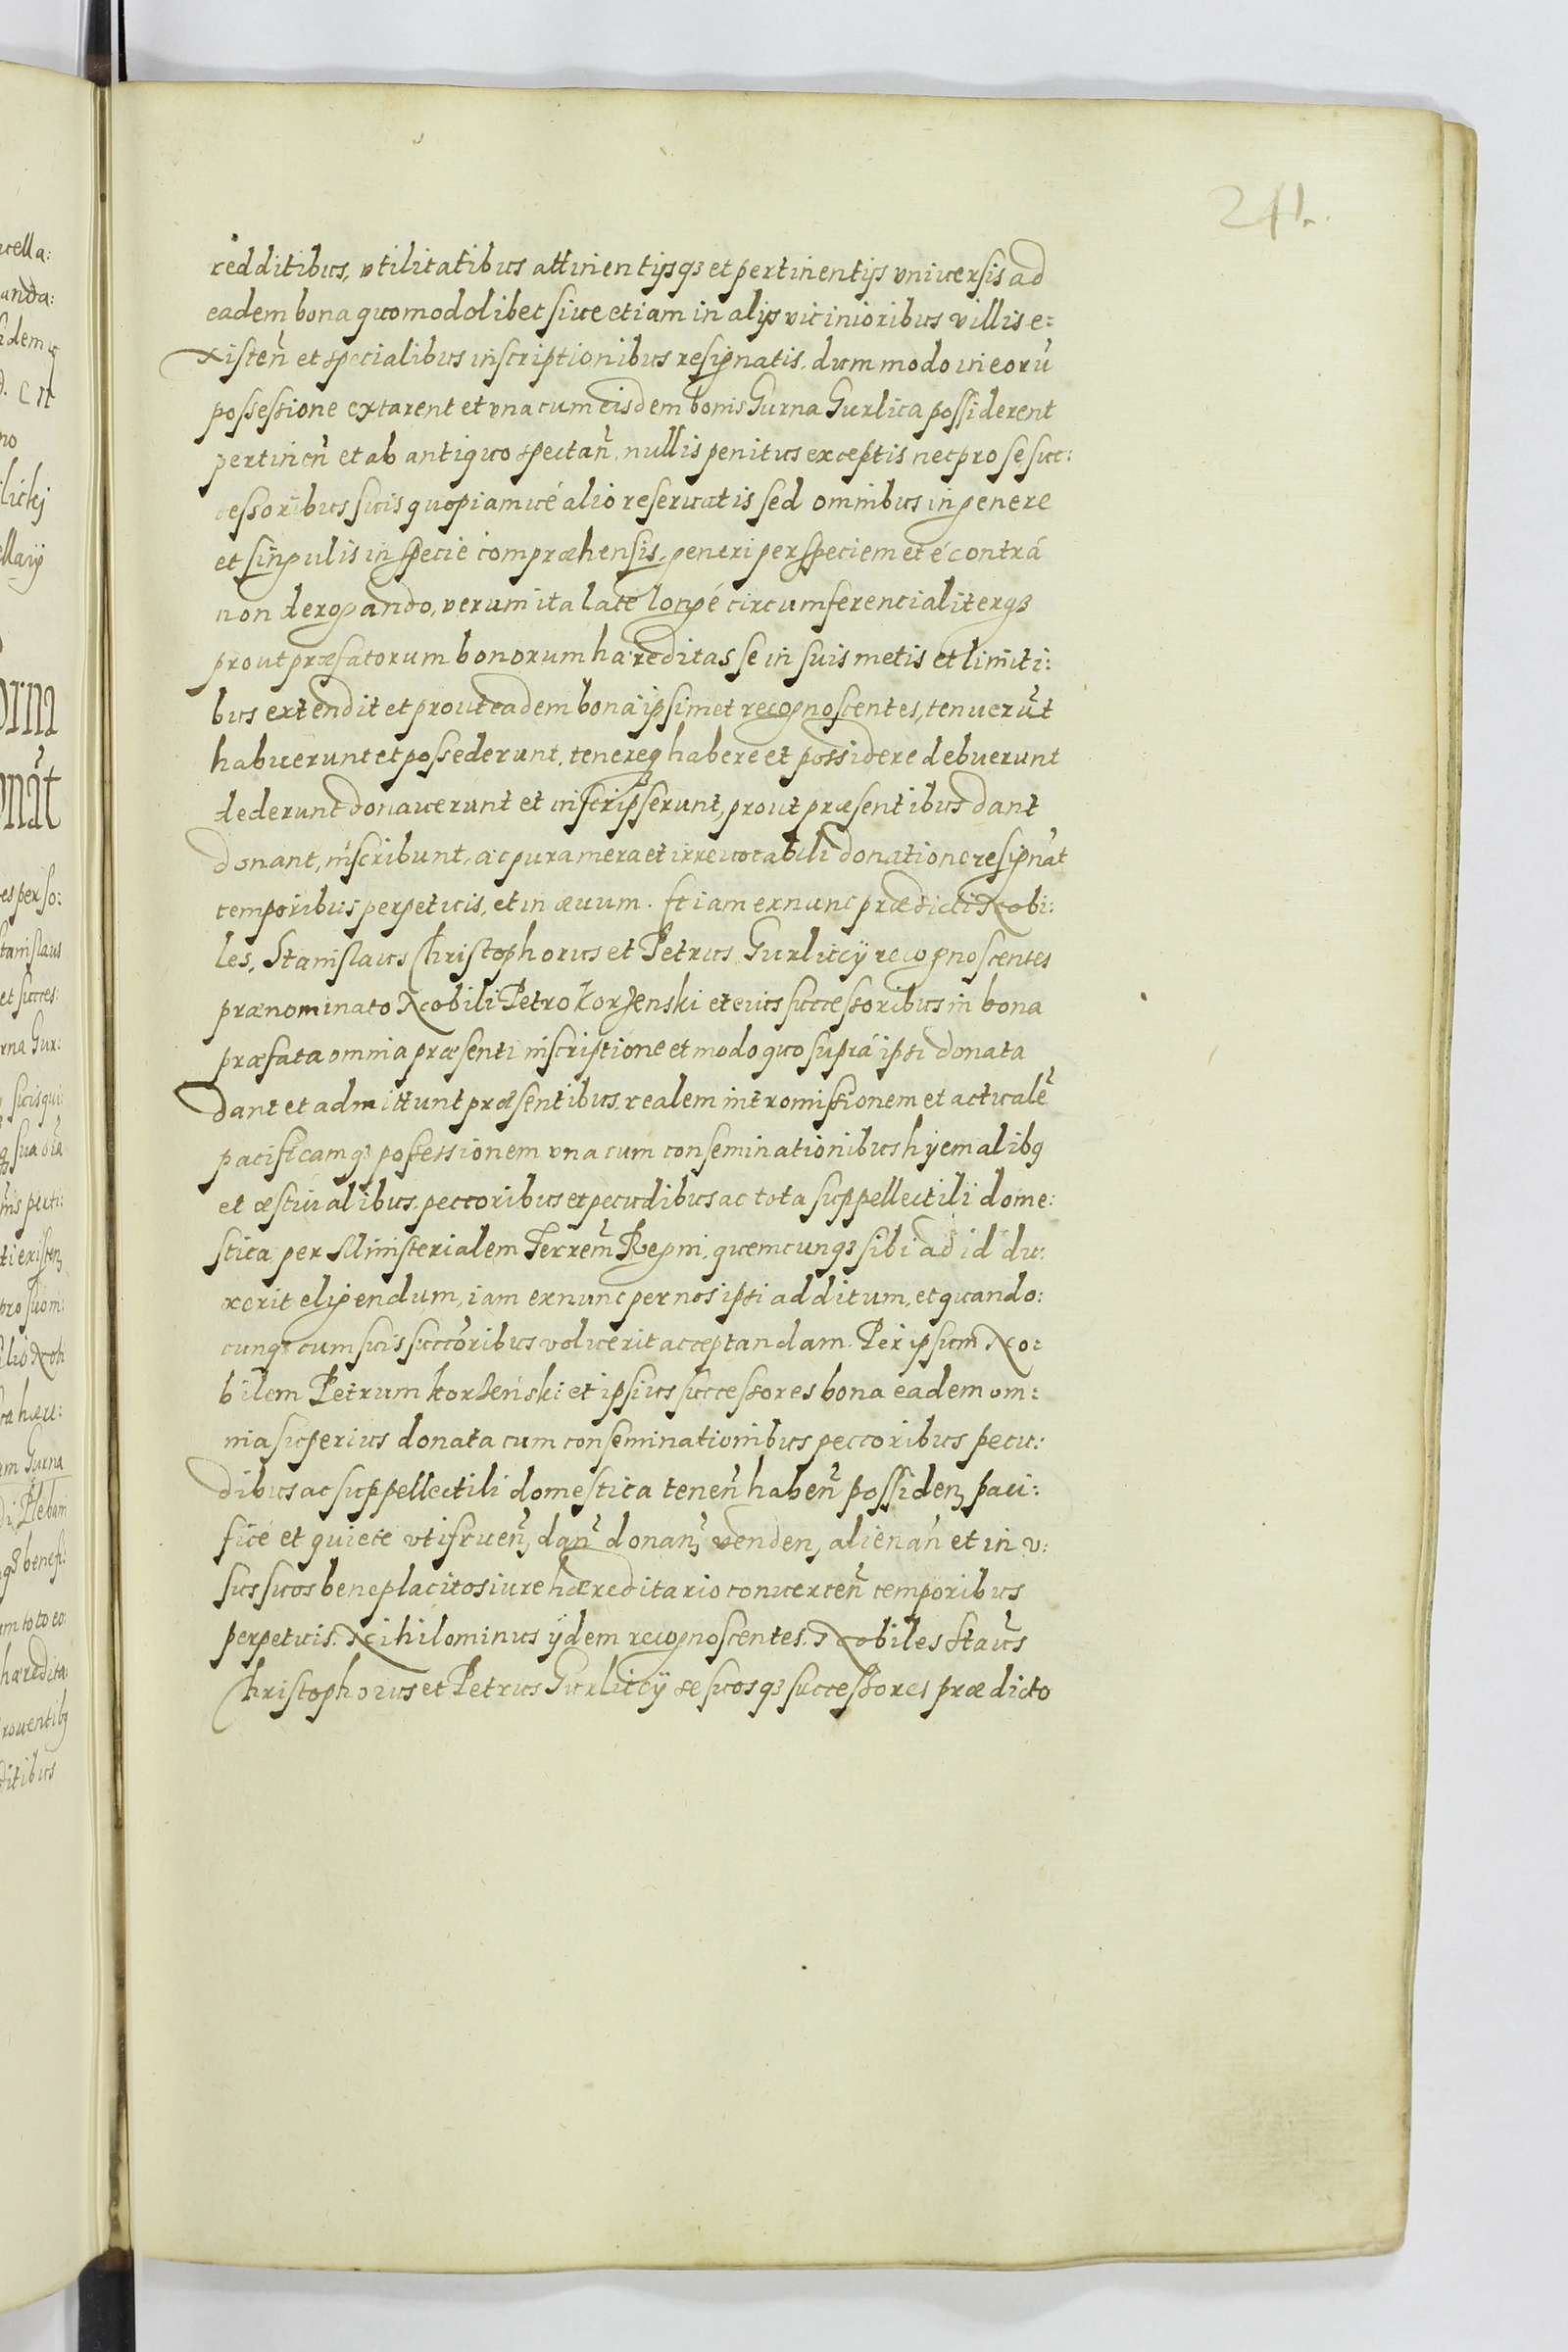 241.
redditibus, vtilitatibus attinentijsq3 et pertinentijs vniuersis ad
eadem bona quomodolibet siue etiam in alijs vicinioribus villis e:
xisteñ et specialibus inscriptionibus resignatis. dummodo in eorũ
possessione extarent et vna cum eisdem bonis Gurna Gurlica possiderent
pertineñ et ab antiquo spectañ, nullis penitus exceptis nec pro se suc:
cessoribus suis quopiamué alio reseruatis sed omnibus in genere
et singulis in specie compræhensis, generi per speciem et é contrá
non derogando, verum ita late longé circumferencialiterq3
prout præfatorum bonorum hæreditas se in suis metis et limiti:
bus extendit et prout eadem bona ipsimet recognoscentes, tenuerũt
habuerunt et possederunt, tenereq3 habere et possidere debuerunt
dederunt donauerunt et inscripserunt, prout præsentibus dant
donant, inscribunt, ac pura mera et irreuocabili donatione resignãt
temporibus perpetuis, et in æuum. Et iam ex nunc prædicti Nobi:
les, Stanislaus Christophorus et Petrus Gurliccÿ recognoscentes
prænominato Nobili Petro Korzenski et eius successoribus in bona
præfata omnia præsenti inscriptione et modo quo suprá ipsi donata
dant et admittunt præsentibus, realem intromissionem et actualẽ
pacificamq3 possessionem vna cum conseminationibus hÿemalibq
et æstiualibus, peccoribus et pecudibus ac tota suppellectili dome:
stica per Ministerialem Terreñ Regni, quemcunq3 sibi ad id du:
xerit eligendum, iam ex nunc per nos ipsi additum, et quando:
cunq3 cum suis succõribus voluerit acceptandam. Per ipsum No:
bilem Petrum Korzeński et ipsius successores bona eadem om:
nia superius donata cum conseminationibus peccoribus pecu:
dibus ac suppellectili domestica teneñ habeñ possideñ paci:
ficé et quiete vti frueñ, dañ donañ venden, alienañ et in v:
sus suos beneplacitos iure hæreditario conuerteñ temporibus
perpetuis. Nihilominus ÿdem recognoscentes. Nobiles Staũs
Christophorus et Petrus Gurliccÿ se suosq3 successores prædicto